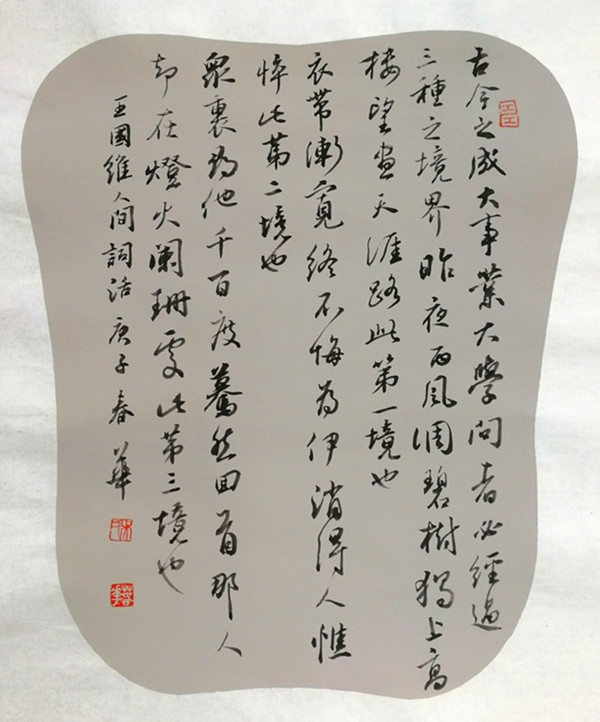 古今之成大事業大學問者必經過
三種之境界昨夜西風凋碧樹獨上高
樓望盡天涯路此第一境也
衣帶漸寬終不悔為伊消得人憔
悴此第二境也
眾裏尋他千百度驀然回首那人
却在燈火闌珊處此第三境也
王國維人间詞话庚子春華